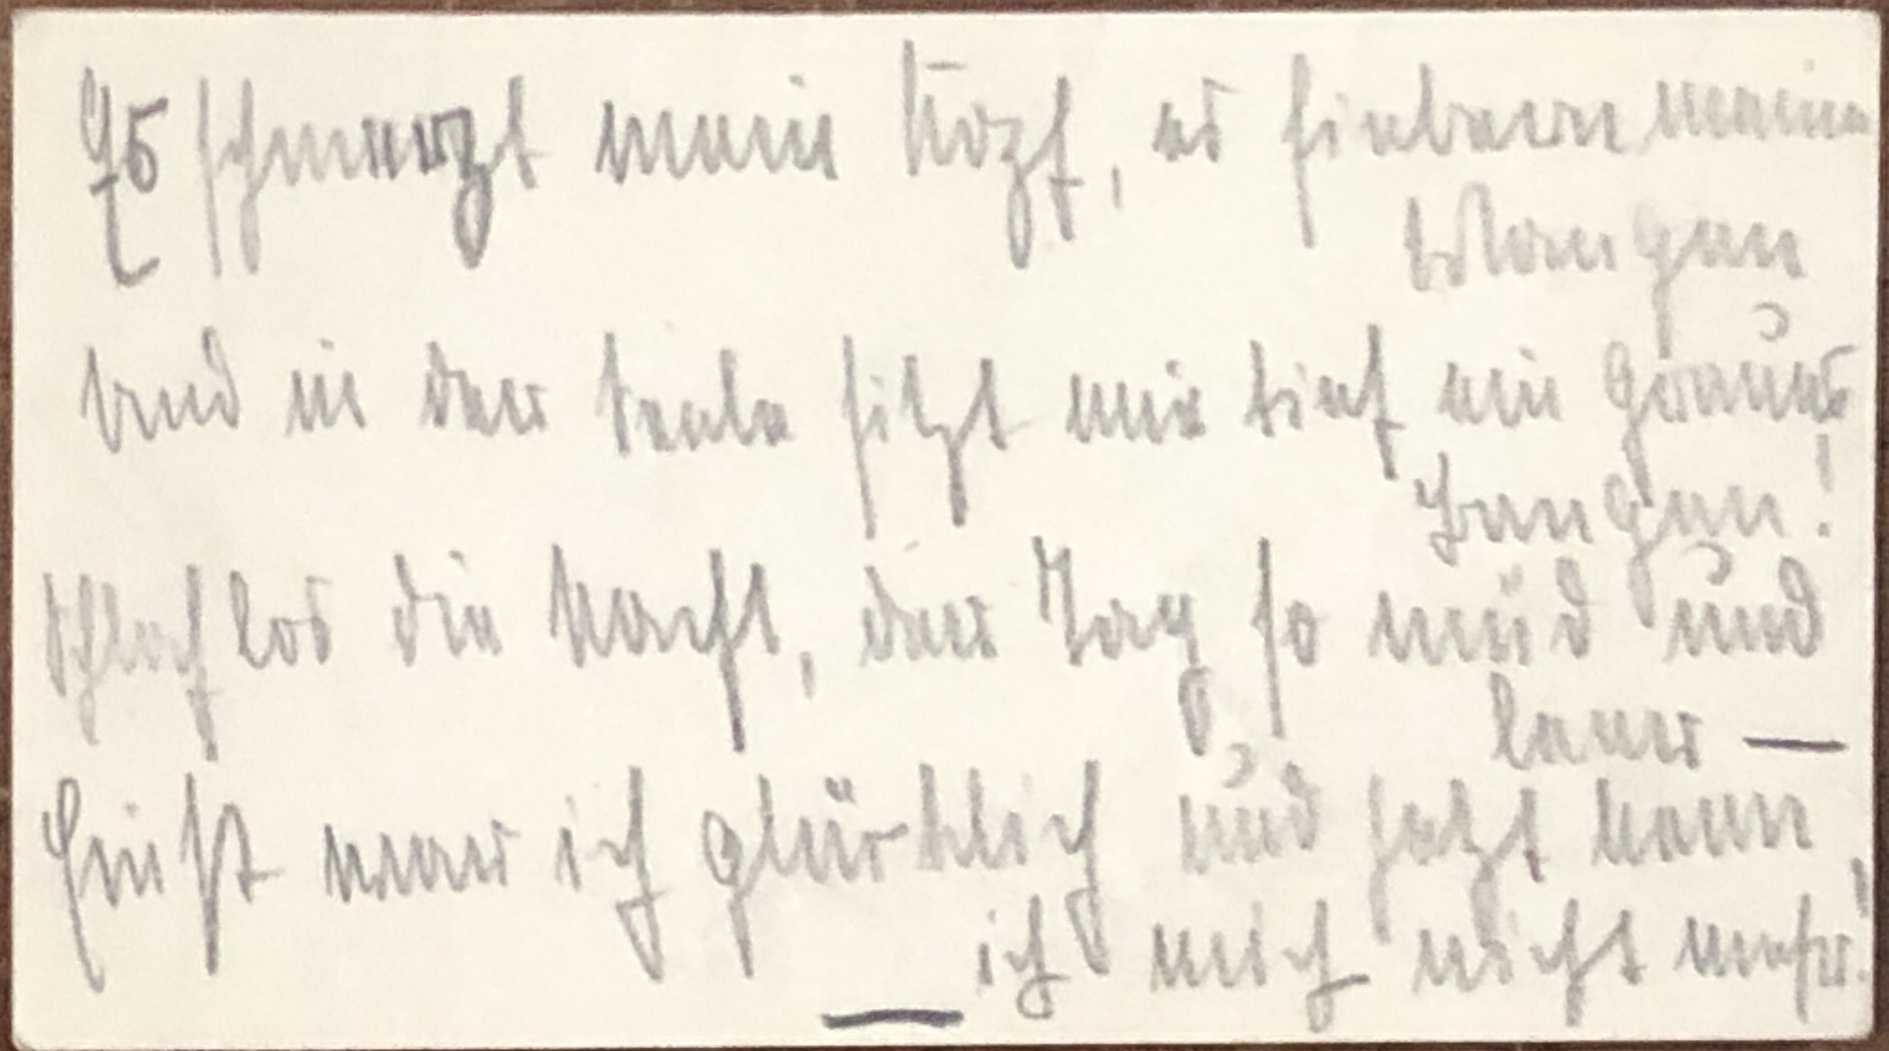 Es schmerzt mein Kopf, es fiebern meine
Wangen
Und in der Seele sitzt mir tief ein grauses
Bangen!
Schlaflos die Nacht, der Tag so müd und
leer —
Einst war ich glücklich und jetzt kenn
ich mich nicht mehr!